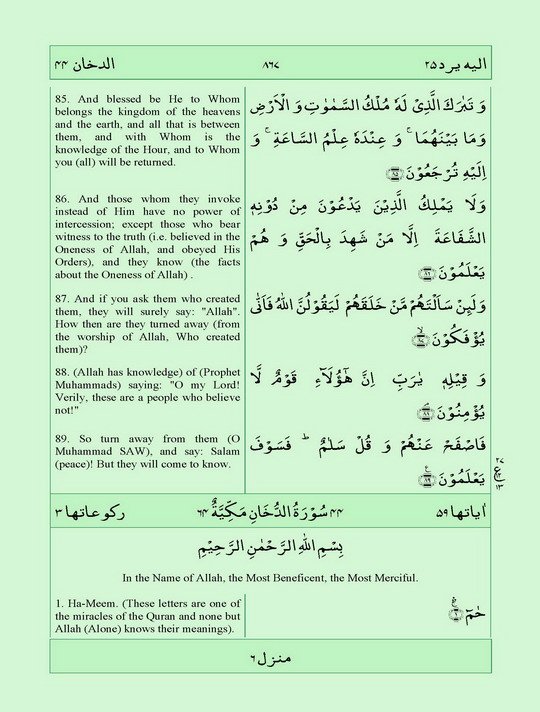 الدخان ۴۴
۸۶۷
الیه یرد ۲۵
85. And blessed be He to Whom
belongs the kingdom of the heavens
and the earth, and all that is between
them, and with Whom is the
knowledge of the Hour, and to Whom
you (all) will be returned.
وَ تَبٰرَكَ الَّذِیْ لَهٗ مُلْكُ السَّمٰوٰتِ وَ الْاَرْضِ
وَمَا بَیْنَهُمَا ۚ وَ عِنْدَهٗ عِلْمُ السَّاعَةِ ۚ وَ
اِلَیْهِ تُرْجَعُوْنَ ﴿۸۵﴾
86. And those whom they invoke
instead of Him have no power of
intercession; except those who bear
witness to the truth (i.e. believed in the
Oneness of Allah, and obeyed His
Orders), and they know (the facts
about the Oneness of Allah) .
وَلَا یَمْلِكُ الَّذِیْنَ یَدْعُوْنَ مِنْ دُوْنِهِ
الشَّفَاعَةَ اِلَّا مَنْ شَهِدَ بِالْحَقِّ وَ هُمْ
یَعْلَمُوْنَ ﴿۸۶﴾
87. And if you ask them who created
them, they will surely say: "Allah".
How then are they turned away (from
the worship of Allah, Who created
them)?
وَلَىِٕنْ سَاَلْتَهُمْ مَّنْ خَلَقَهُمْ لَیَقُوْلُنَّ اللّٰهُ فَاَنّٰى
یُؤْفَكُوْنَ ۙ﴿۸۷﴾
88. (Allah has knowledge) of (Prophet
Muhammads) saying: "O my Lord!
Verily, these are a people who believe
not!"
وَ قِیْلِهٖ یٰرَبِّ اِنَّ هٰۤؤُلَآءِ قَوْمٌ لَّا
یُؤْمِنُوْنَ ﴿۸۸﴾
89. So turn away from them (O
Muhammad SAW), and say: Salam
(peace)! But they will come to know.
فَاصْفَحْ عَنْهُمْ وَ قُلْ سَلٰمٌ ؕ فَسَوْفَ
یَعْلَمُوْنَ ﴿۸۹﴾
۲۷
ع
۱۳
اٰیاتها ۵۹
۴۴ سُوْرَةُ الدُّخَانِ مَكِّیَّةٌ ۶۴
ركوعاتها ۳
بِسْمِ اللّٰهِ الرَّحْمٰنِ الرَّحِیْمِ
In the Name of Allah, the Most Beneficent, the Most Merciful.
1. Ha-Meem. (These letters are one of
the miracles of the Quran and none but
Allah (Alone) knows their meanings).
حٰمٓ ﴿۱﴾
منزل ۶